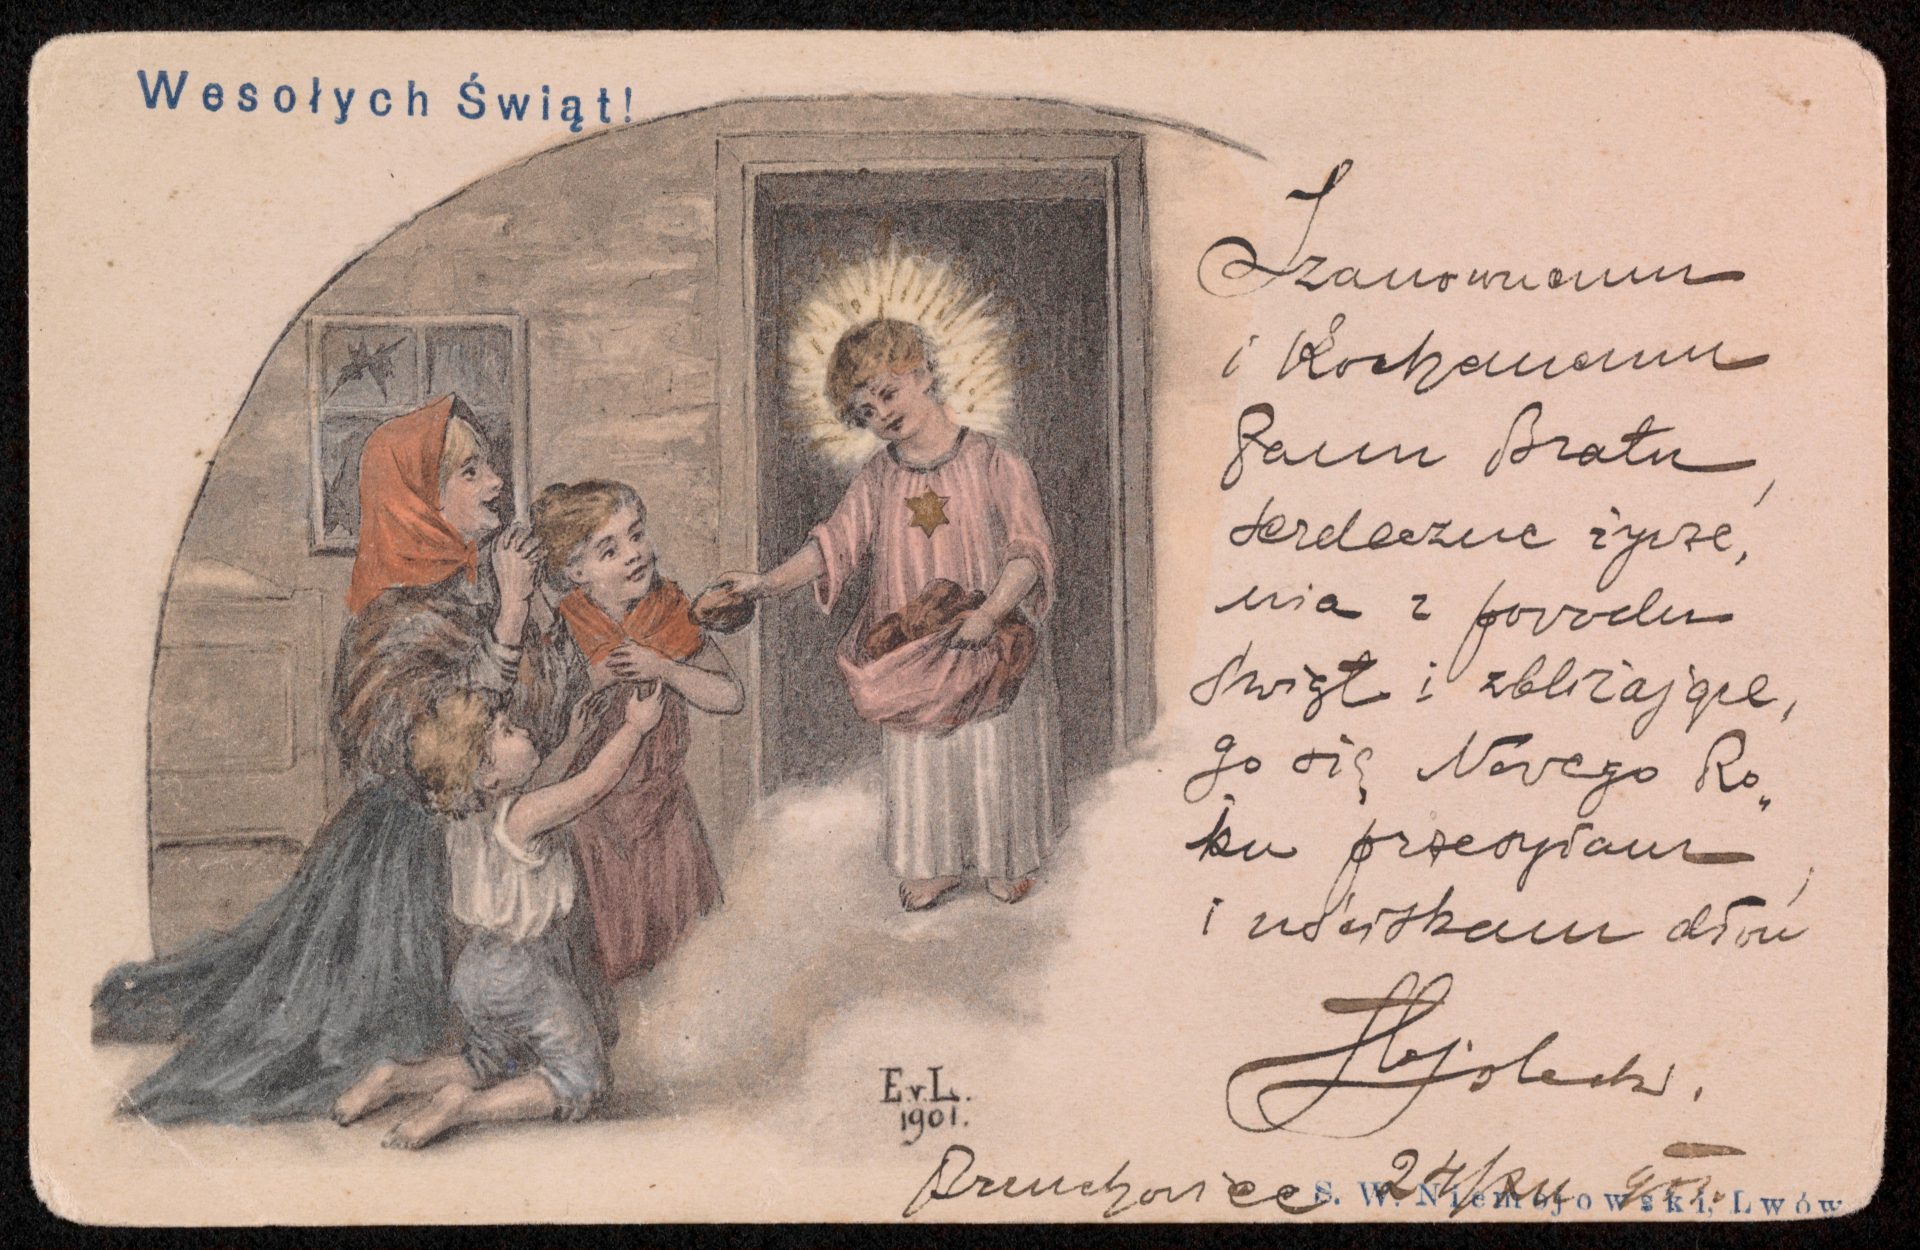 Wesołych Świąt!
Szanownemu
i Kochanemu
Panu Bratu,
serdeczne życze,
nia z powodu
Świąt i zbliżające,
go się Nowego Ro„
ku przesyłam,
i uściskam dłoń
E.v.L.
1901.
Brzuchowice 24/XII
S. W. Niemojowski, Lwów